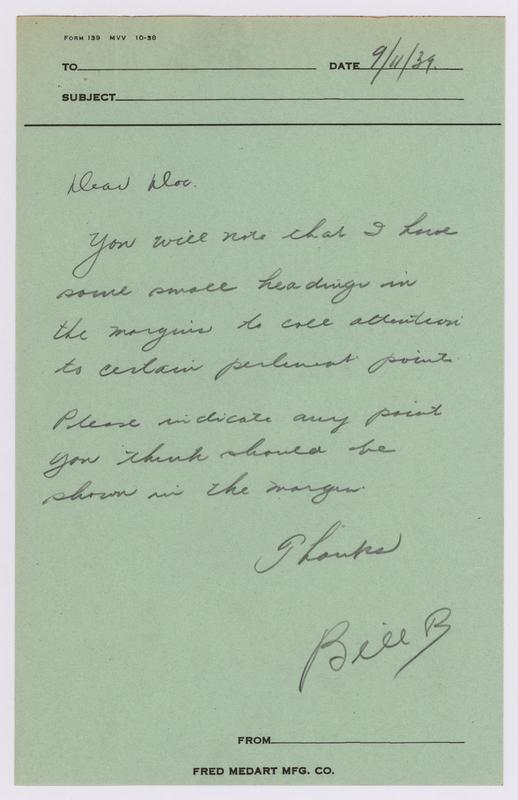 FORM 139 MVV 10-38
TO DATE 9/11/39.
SUBJECT
Dear Doc.
You will note that I have
some small headings in
the margins to call attention
to certain pertinent points.
Please indicate any point
you think should be
shown in the margin.
Thanks
Bill B
FROM
FRED MEDART MFG. CO.